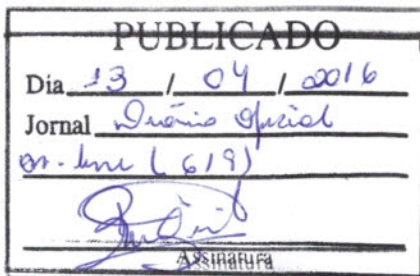 PUBLICADO
Dia 13 / 04 / 2016
Jornal Diário Oficial
on-line (619)
Assinatura